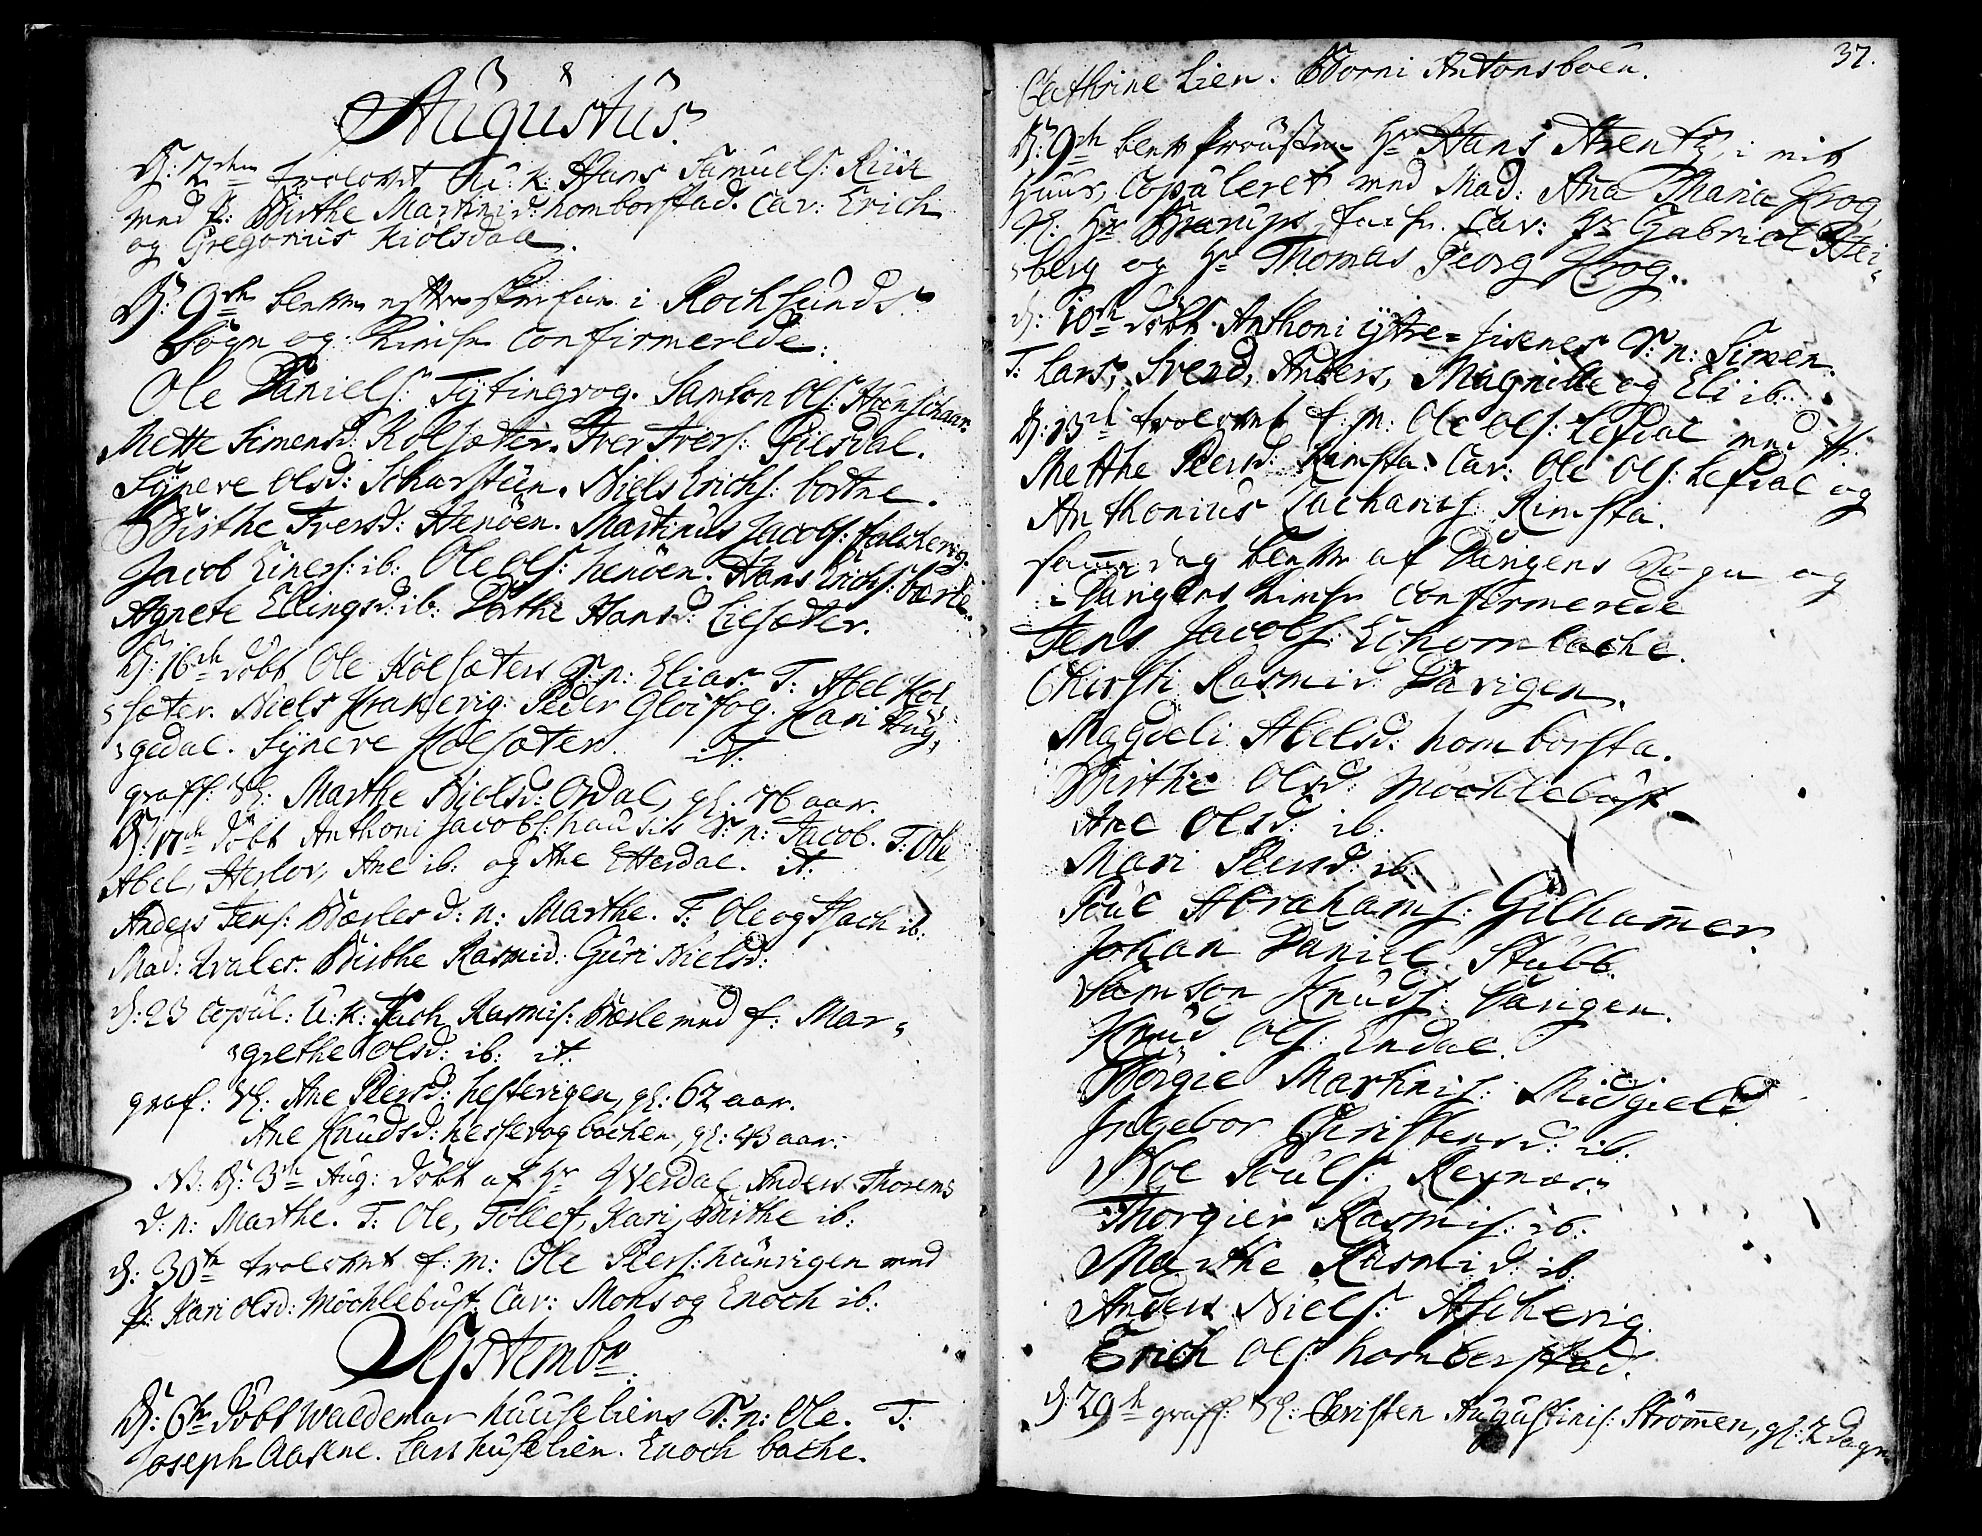 Augustus.
D: 2den trolovet U: K: Hans Samuels: Riise
med P: Birthe Martinid: homborstad. Cav: Erich
og Gregorius Kiølsdal.
D: 9de blevne efterskrefne i Rochsunds
Sogn og Kirke Confirmerede:
Ole Daniels: Tytingvog. Samson Ols:
Mette Simensd: Kolsæter. Iver Ivers: Giesdal.
Syneve Olsd: Scharstein. Niels Erichs: bortne.
Birthe Iversd: Henöen. Martinus Jacobs: falchevig.
Jacob Einers: ib: Ole Ols: henöen. Hans Erichs: bærle.
Agnete Ellingsd: ib: Dorthe Hansd: Liesæter.
D: 16de döbt Ole Kolsæters S: n: Elias. T: Abel Kol-
sæter. Niels Kranevig. Peder Gloifog. Kari Aug-
gedal. Syneve Kolsæter. it:
graff: Sl: Marthe Nielsd: Ordal, gl: 76 aar.
D: 17de döbt Anthoni Jacobs: S: n: Jacob. T: Ole,
Abel, Herlov, Ane ib: og Ane Etterdal. it:
Anders Jens: Bærles d: n: Marthe. T: Ole og Isach ib:
Mad: Hvales. Birthe Rasmid: Guri Nielsd:
D: 23 Copul: U: K: Isach Rasmis: Bærle med P: Mar-
grethe Olsd: ib: it:
graf: Sl: Ane Peersd: hestevigen, gl: 62 aar.
Ane Knudsd: hessevogbachen, gl: 43 aar:
NB: D: 3de Aug: döbt af Hr Werdal Anders Thorens
d: n: Marthe. T: Ole, Tollef, Kari, Birthe ib:
D: 30te trolovet S: m: Ole Peers: haüvigen med
P: Kari Olsd: Möchlebust. Cav: Mons og Enoch ib:
Septembr:
D: 6te döbt Waldemar haüseliens S: n: Ole. T:
Joseph Aasene. Lars huselien. Enoch bache.
37.
Cathrine Lien. Borni Antonsböen.
D: 9de blev Proüsten Hr Hans Arentz, i mit
huus, Copuleret med Mad: Ana Maria Krog,
Sl: Hr enke. Cav: Hr Gabriel Hei-
berg og Hr Thomas Georg Krog.
D: 10de döbt Anthoni ÿtre- S: n: Simen.
T: Lars, Svend, Anders, Magnilde og Eli ib:
D: 13de trolovet S: m: Ole Ols: Lefdal med P:
Methe Peersd: Rimsta. Cav: Ole Ols: Lefdal og
Anthonius Zacharis: Rimsta.
samme dag blevne af Davigens Sogn og
i Davigens Kirke Confirmerede
Jens Jacobs: Echornbache.
Chirsti Rasmid: Davigen.
Magdeli Abelsd: homborsta.
Birthe Olsd: Möchlebust
Ane Olsd: ib:
Mari Peersd: ib:
Poul Abrahams: Gilhamer.
Johan Daniel Stubb.
Samson Knuds: Davigen.
Knud Ols: Endal.
Börgie Martinis: Midgield
Ingebor Christensd: ib:
Noe Pouls: Rexnæs
Thorgier Rasmis: ib:
Marthe Rasmid: ib:
Anders Niels: Aschevig.
Erich Ols: homberstad.
D: 29de graff: Sl: Christen Augustinis: Strömen, gl: 2 Dage.